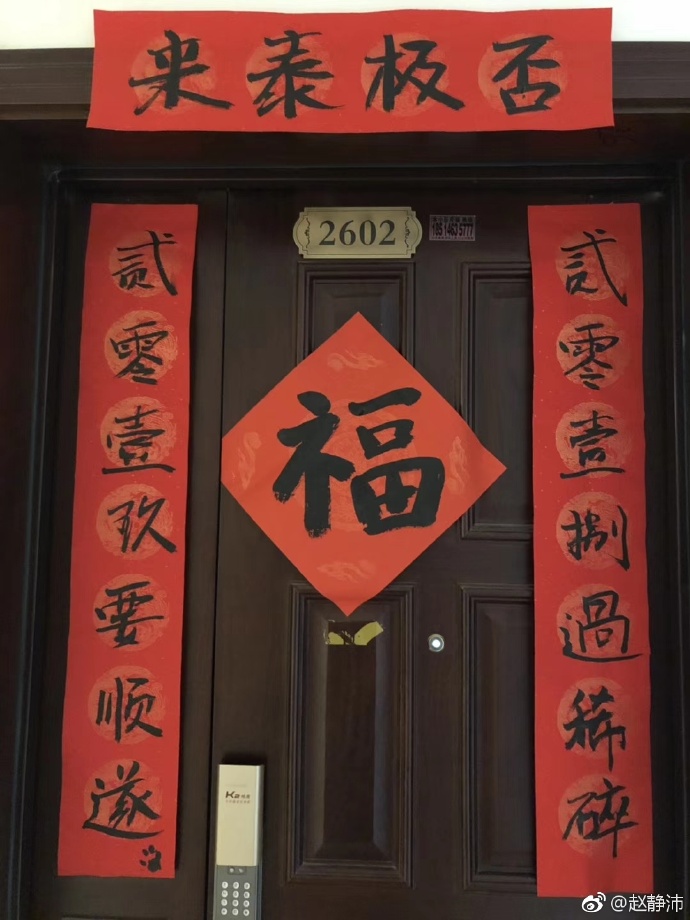 来泰极否
贰零壹捌過稀碎
贰零壹玖要顺遂
福
2602
K2
@赵静沛